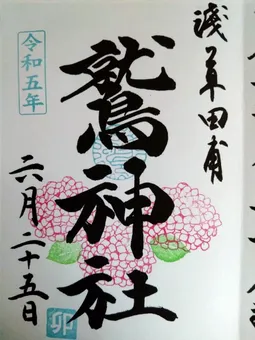 浅草田甫
鷲神社
令和五年
六月二十五日
卯